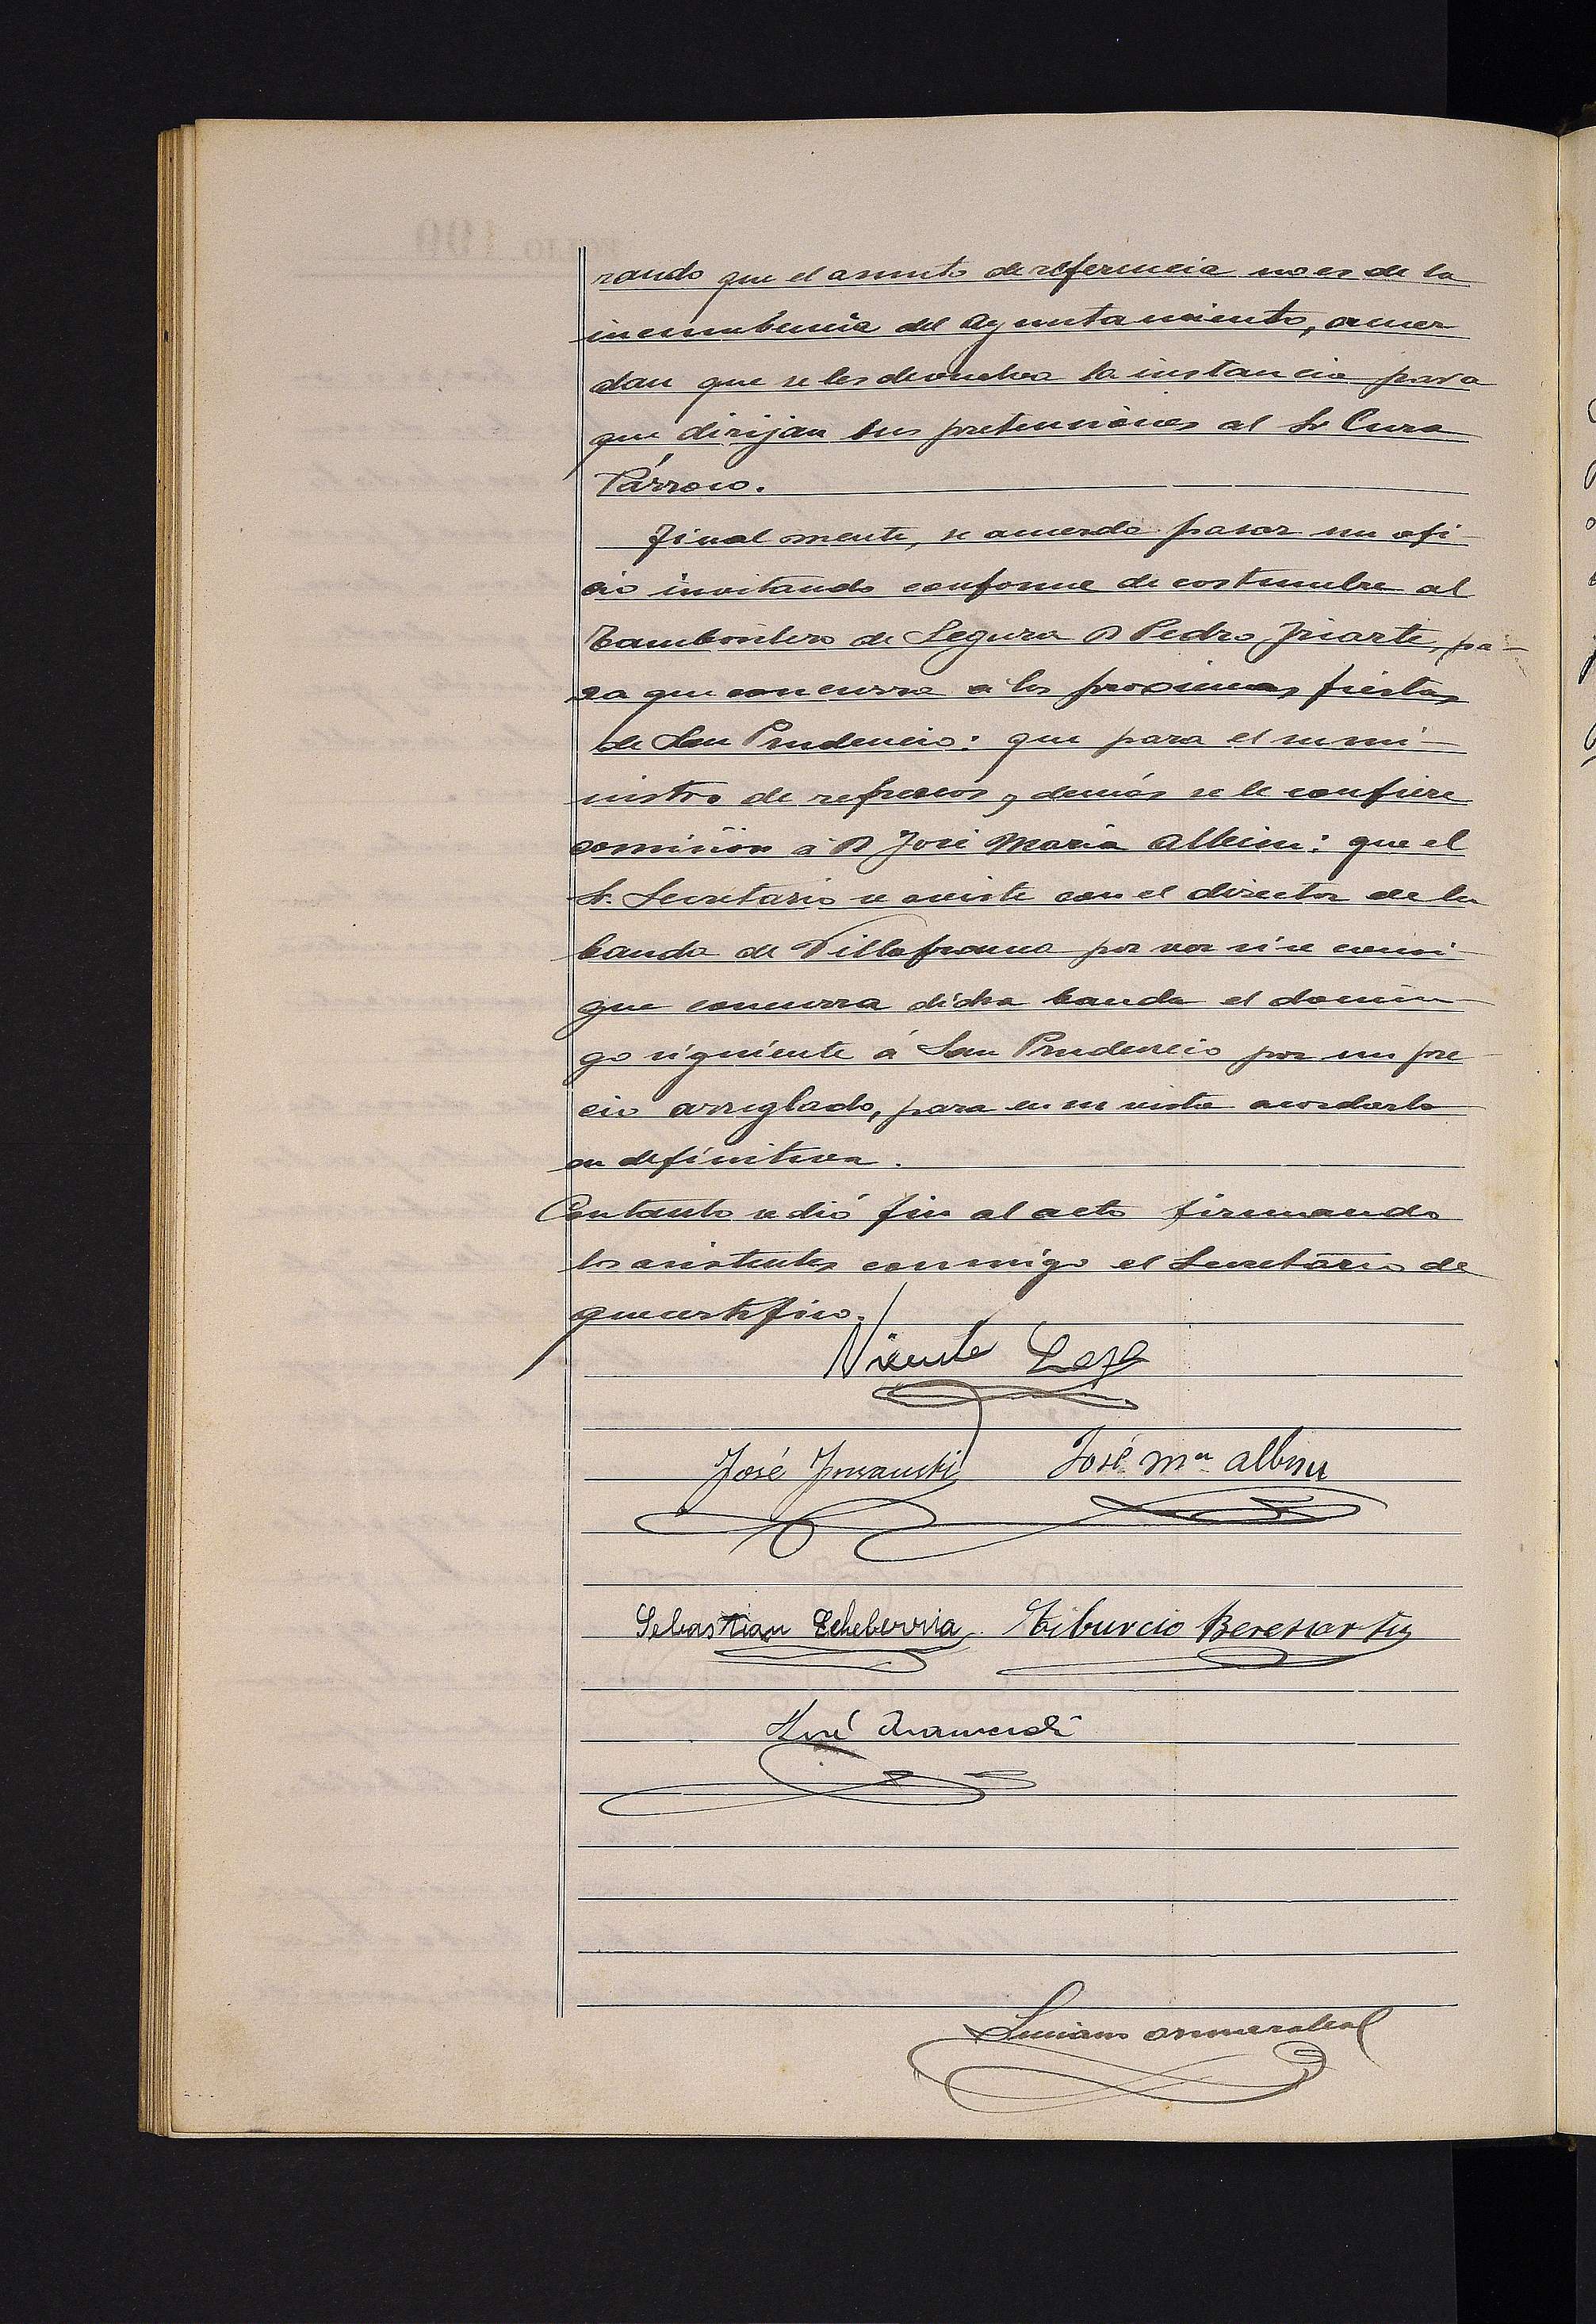 rando que el asunto de referencia no es de la
incumbencia del Ayuntamiento, acuer
dan que se les devuelva la instancia para
que dirijan sus pretensiones al Sr Cura
Párroco.
Finalmente, se acuerda pasar un ofi-
cio invitando conforme de costumbre al
Tamborilero de Segura D Pedro Iriarte, pa-
ra que concurra a las proximas fiestas
de San Prudencio: que para el sumi-
nistro de refrescos y demás se le confiere
comisión á D José Maria Albisu: que el
Sr. Secretario se aviste con el director de la
banda de Villafranca por ver si se consi-
gue concurra dicha banda el domin-
go siguiente á San Prudencio por un pre-
cio arreglado, para en su vista acordarlo
en definitiva.
Con tanto se dió fin al acto firmando
los asistentes conmigo el Secretario de
que certifico.
Vicente
José José Mª Albisu
Sebastian Echeberria Tiburcio Beresiartu
José Aramendi
Luciano